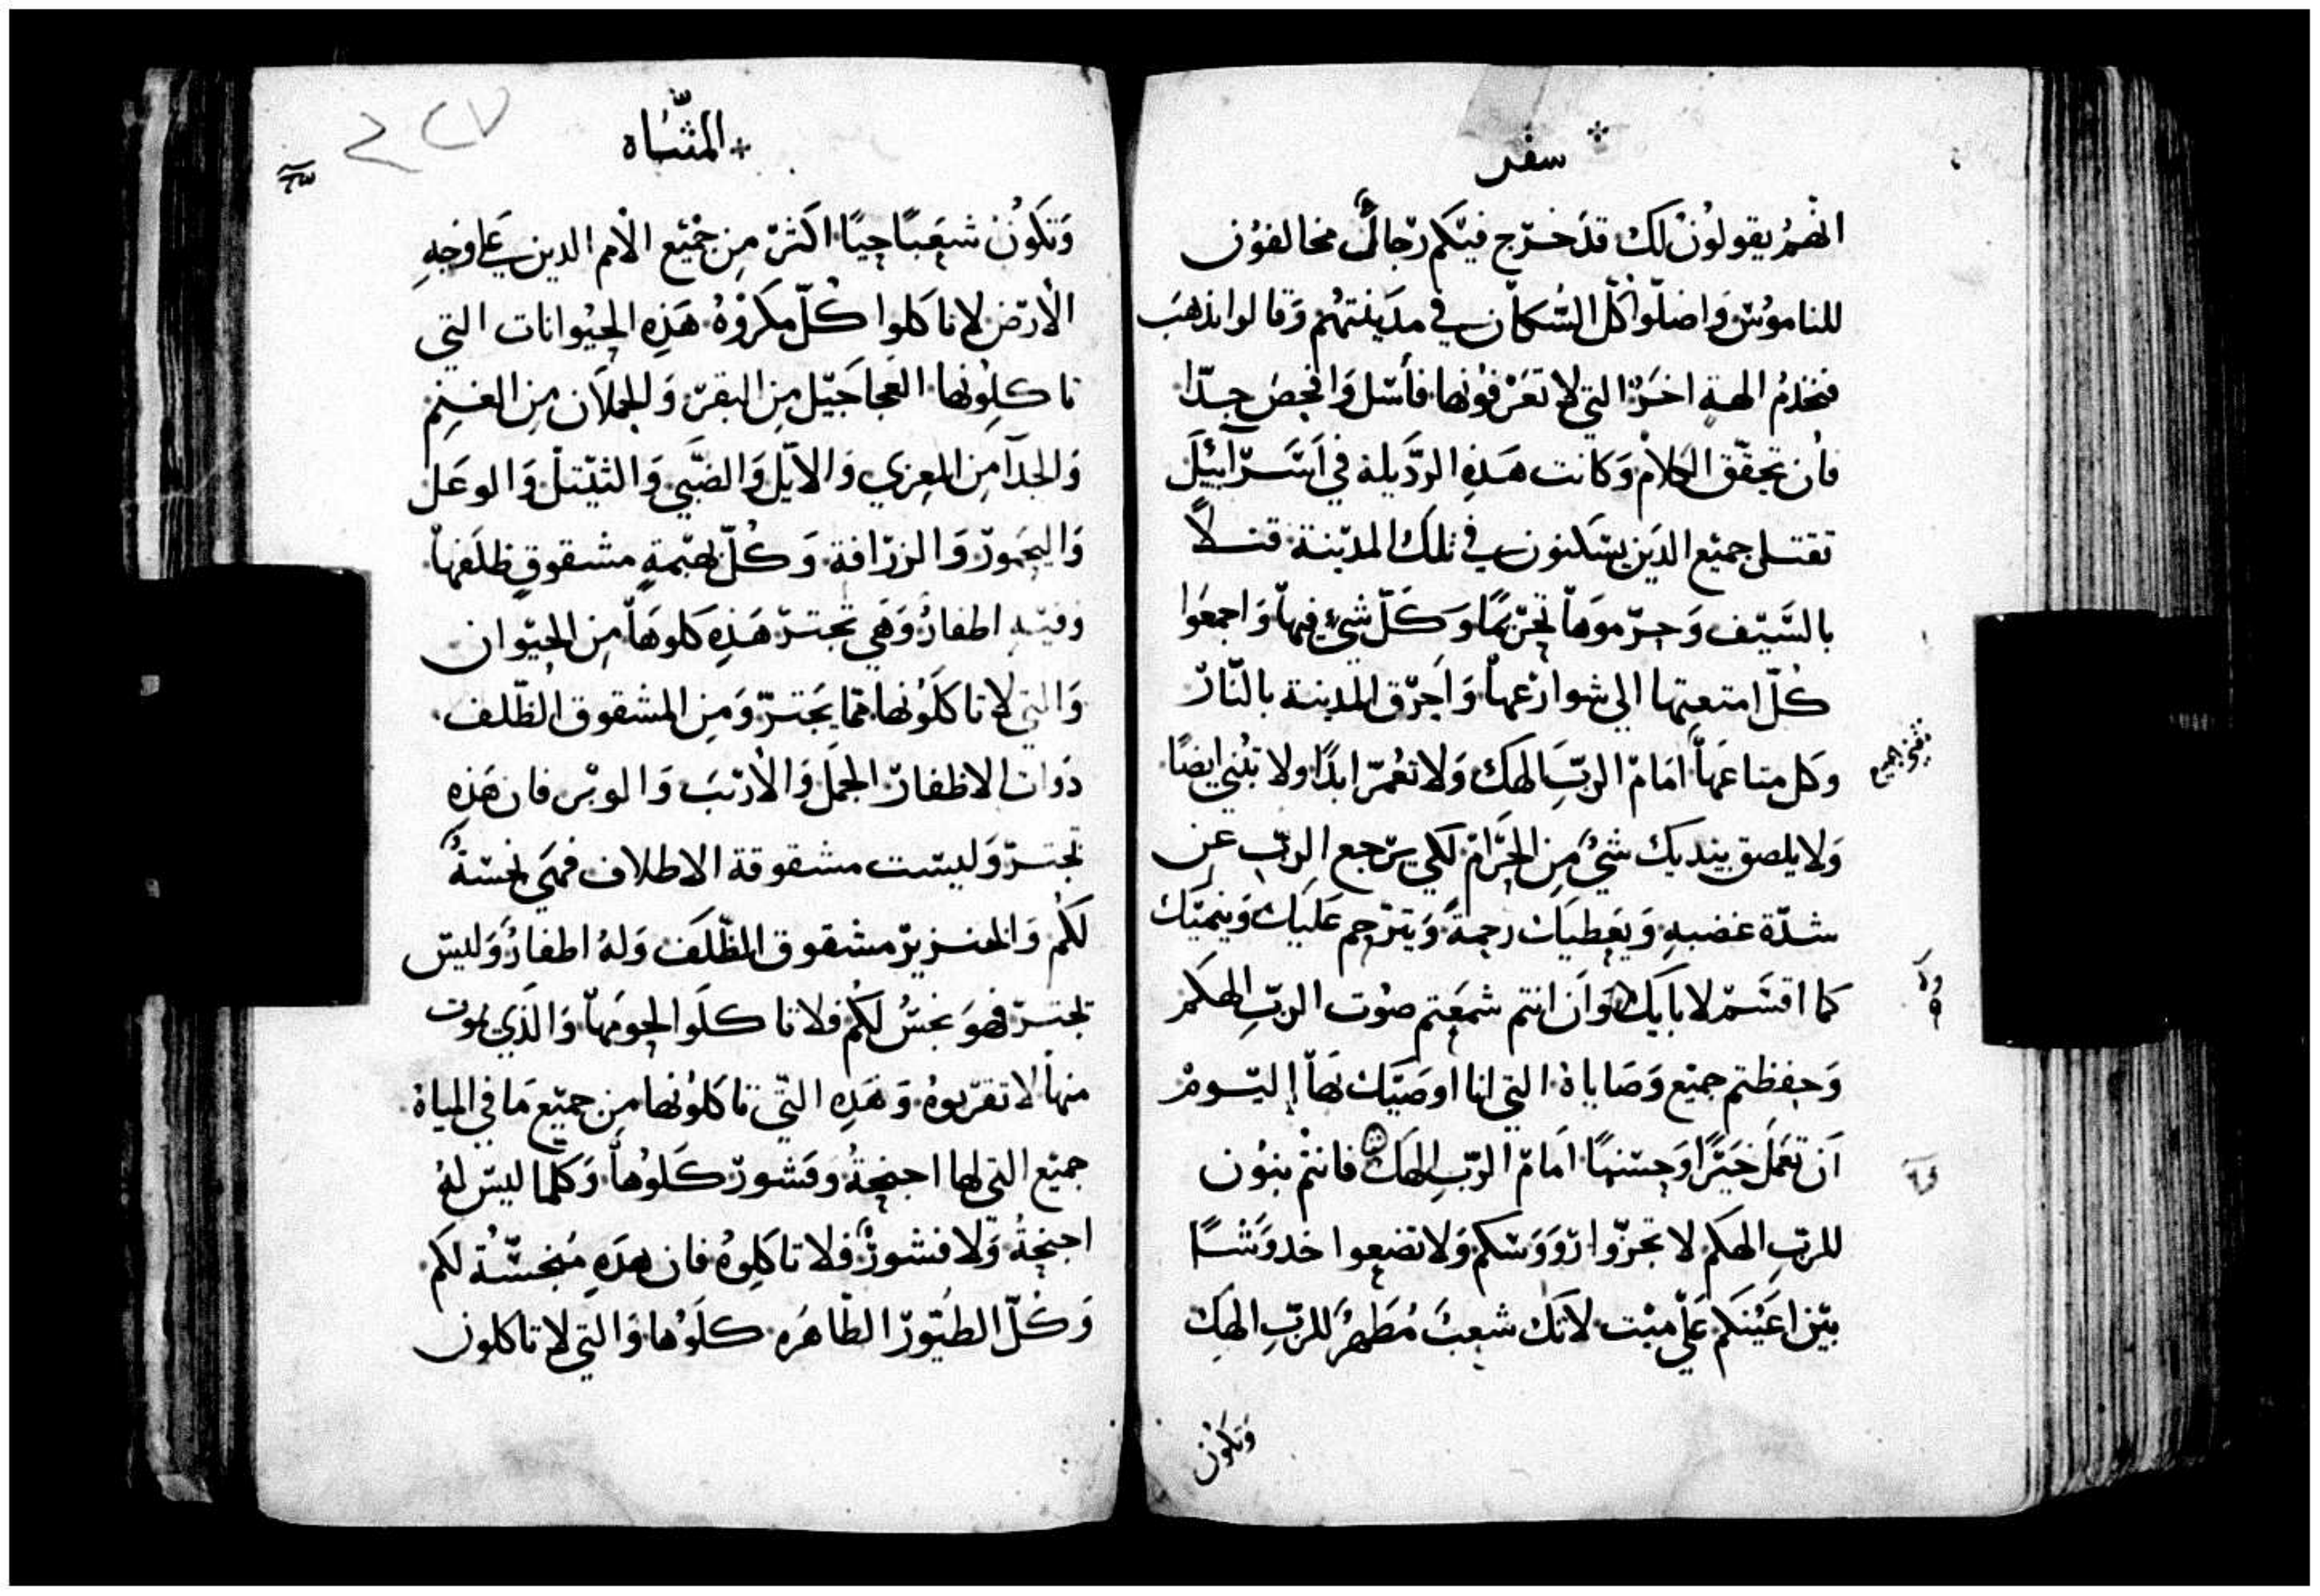 سفر
الهم يقولون لك قد خرج فيكم رجال مخالفون
للناموس واضلوا كل السكان في مدينتهم وقالوا نذهب
فنخدم الهة اخر التي لا تعرفونها فأسل وافحص جدا
فأن تحقق الكلام وكانت هذه الرديله في اسرآئيل
تقتل جميع الدين يسكنون في تلك المدينة قتلاً
بالسيف وحرموها تحريمًا وكل شيء فيها واجمعوا
كل امتعتها الي شوارعها واحرق المدينة بالنار
وكل متاعها امام الرب الهك ولا تعمر ابدًا ولا تبني ايضًا
ولا يلصق بيديك شيء من الحرام لكي يرجع الرب عن
شدة غضبه ويعطيك رحمة ويترحم عليك وينميك
كما اقسم لابايك وان انتم سمعتم صوت الرب الهكم
وحفظتم جميع وصاياه التي انا اوصيك بها اليوم
ان تعمل خيرًا وحسنًا امام الرب الهك فانتم بنون
للرب الهكم لا تجزوا رووسكم ولا تضعوا خدوشًا
بين اعينكم علي ميت لانك شعب مطهر للرب الهك
وتكون
المثناه
٢٢٧
وتكون شعبًا حيًا اكثر من جميع الامم الدين علي وجه
الأرض لا تاكلوا كل مكروه هذه الحيوانات التي
تاكلونها العجاجيل من البقر والحملان من الغنم
والجدآ من المعزي والايل والضبي والثيتل والوعل
واليحمور والزرافة وكل بهيمة مشقوق ظلفها
وفيه اظفار وهي تجتر هذه كلوها من الحيوان
والتي لا تاكلونها مما يجتر ومن المشقوق الظلف
ذوات الاظفار الجمل والأرنب والوبر فان هذه
تجتر وليست مشقوقة الاظلاف فهي نجسة
لكم والخنزير مشقوق الظلف وله اظفار وليس
تجتر فهو نجس لكم فلا تاكلوا لحومها والذي يموت
منها لا تقربوه وهذه التي تاكلونها من جميع ما في المياه
جميع التي لها اجنحة وقشور كلوها وكلما ليس له
اجنحة ولا قشور فلا تاكلوه فان هذه منجسة لكم
وكل الطيور الطاهره كلوها والتي لا تاكلون